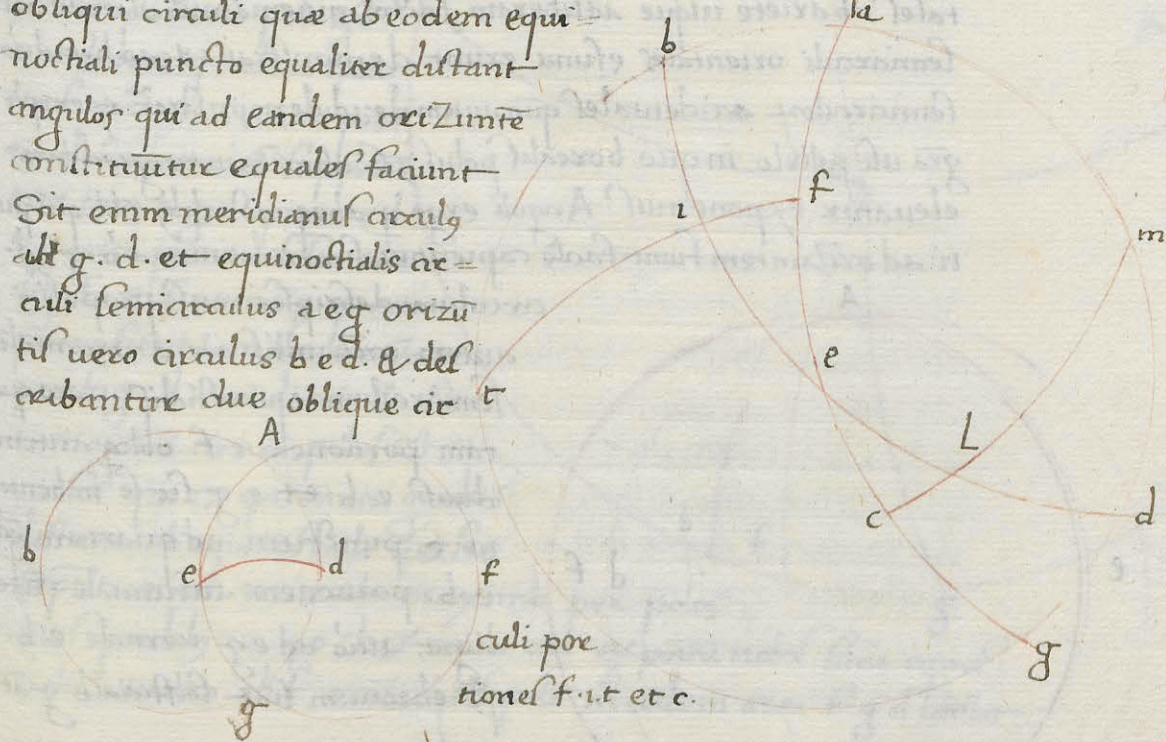 obliqui circuli quæ ab eodem equi-
noctiali puncto equaliter distant
angulos qui ad eandem oriZuntē
constituūtur equales faciunt
Sit enim meridianus circulꝰ
g. d. et equinoctialis cir=
culi semicirculus a e g orizū
tis uero circulus b e d. & des
cribantur due oblique cir
culi por
tiones f.ı.t et c.
b
a
f
ı
m
e
t
L
c
d
g
A
b
e
d
f
g